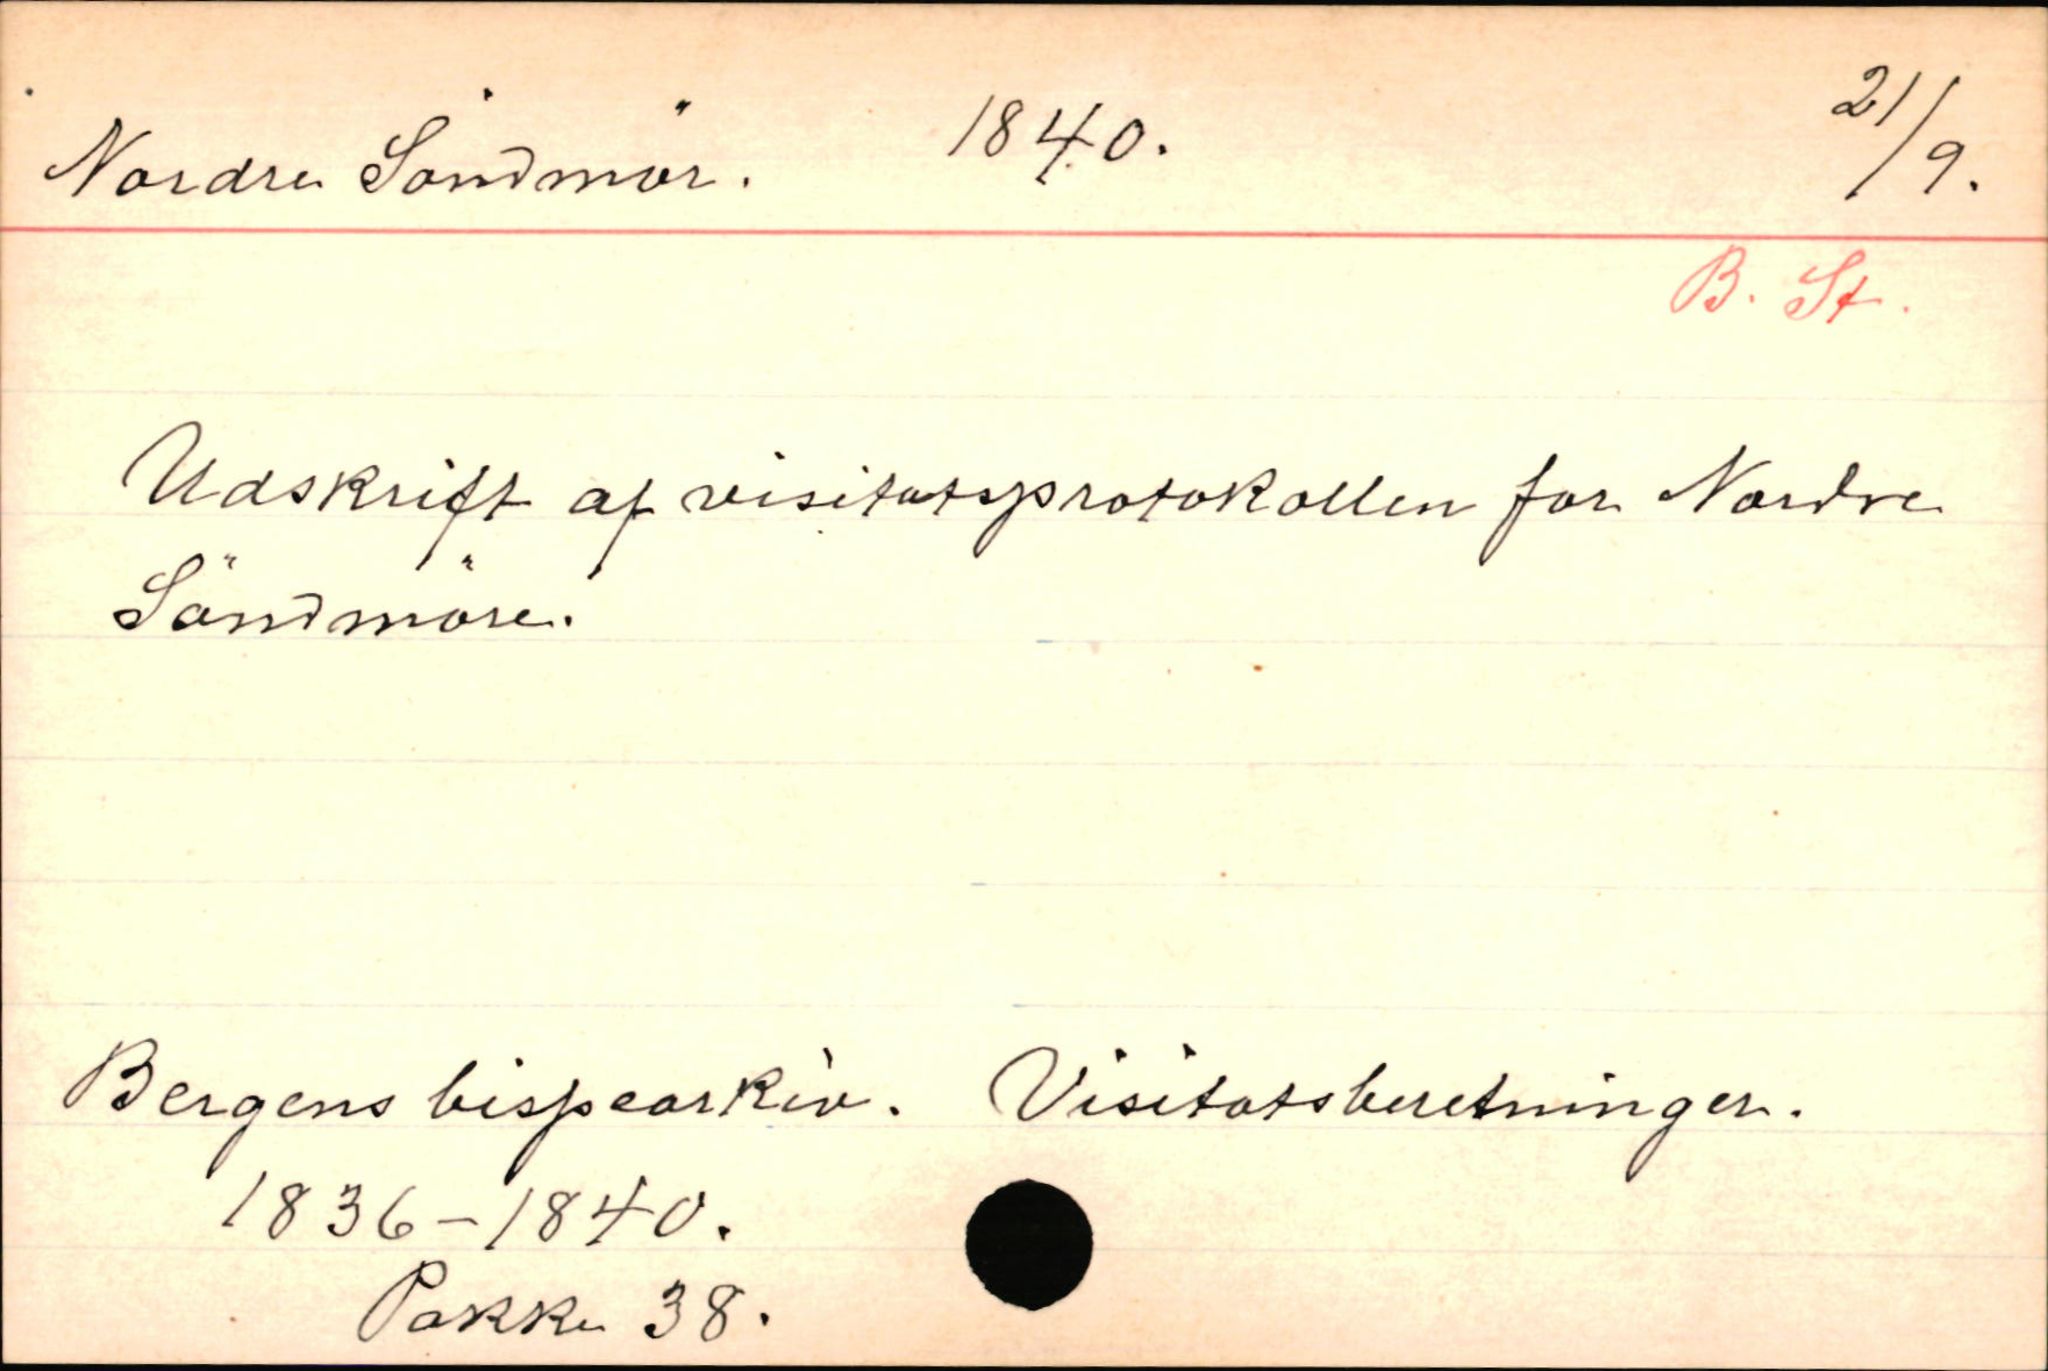 Nordre Söndmör. 1840. 21/9.
B. St.
Udskrift af visitatsprotokollen for Nordre
Söndmöre.
Bergens bispearkiv. Visitatsberetninger.
1836-1840.
Pakke 38.